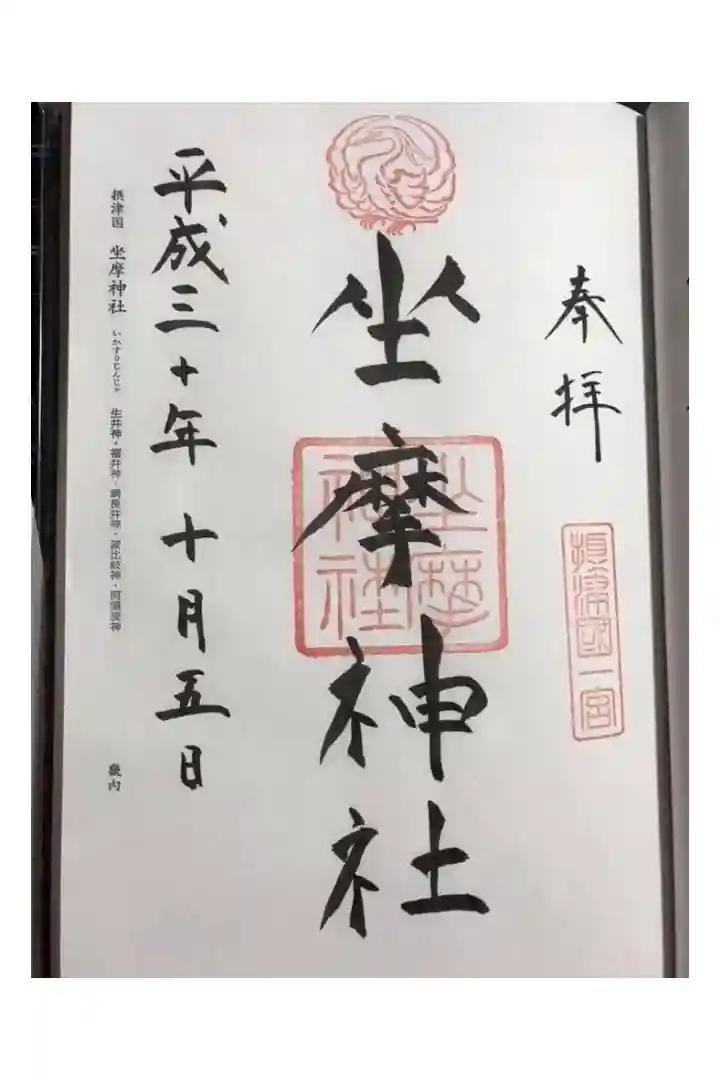 奉拝
摂津國一宮
坐摩神社
坐摩
神社
平成三十年 十月五日
摂津国 坐摩神社 いかすりじんじゃ 生井神・福井神・綱長井神・波比岐神・阿須波神 畿内